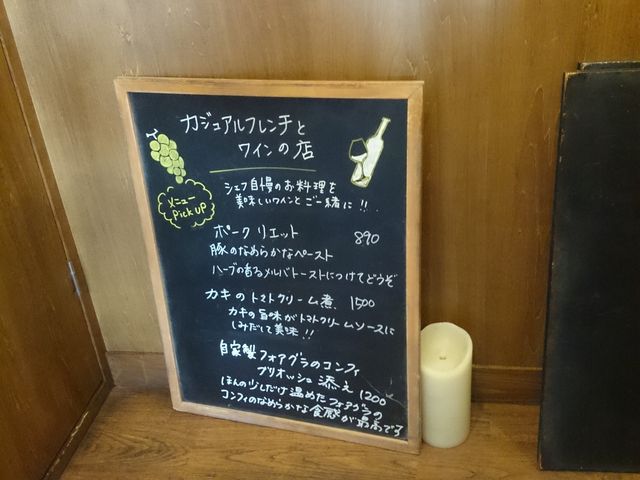 カジュアルフレンチと
ワインの店
シェフ自慢のお料理を
美味しいワインとご一緒に!!
メニュー
PICK UP
ポーク リエット 890
豚のなめらかなペースト
ハーブの香るメルバトーストにつけてどうぞ
カキのトマトクリーム煮 1500
カキの旨味がトマトクリームソースに
しみだして美味!!
自家製フォアグラのコンフィ
ブリオッシュ添え 1200
ほんの少しだけ温めたフォアグラの
コンフィのなめらかな食感が最高です